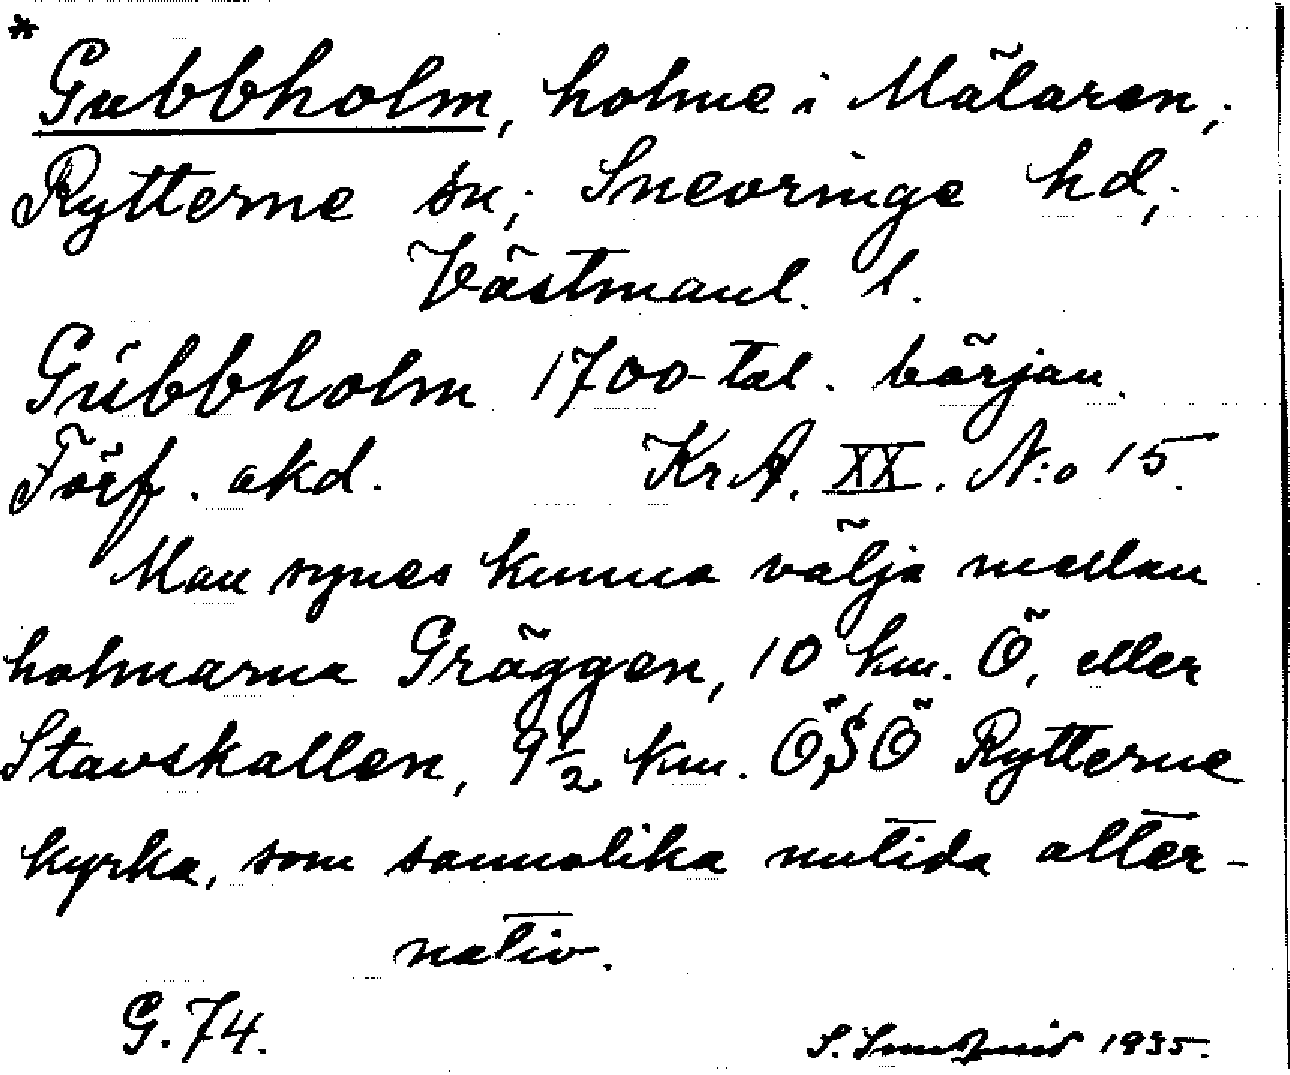 *
Gubbholm, holme i Mälaren;
Rytterne sn; Snevringe hd;
Västmanl. l.
Gubbholm 1700-tal. början.
Förf. okd. KrA. XX. N:o 15.
Man synes kunna välja mellan
holmarna Gräggen, 10 km. Ö, eller
Stavskallen, 9½ km. ÖSÖ Rytterne
kyrka, som sannolika nutida alter-
nativ.
G. 74.
S. 1935.